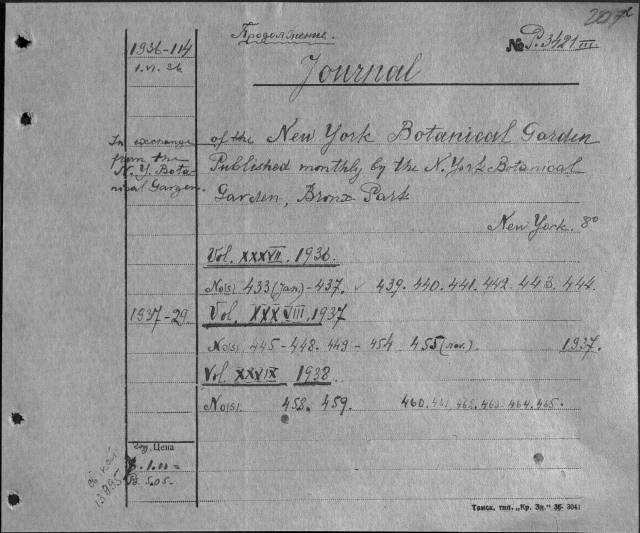 207
Продолжение.
1936-114
1.VI.36
№ P.3421 III
Journal
In exchange
from the
N. Y. Bota-
nical Garden.
of the New York Botanical Garden
Published monthly by the N. York Botanical
Garden, Bronx Park
New York. 8°
Vol. XXXVII. 1936.
No(s) 433 (Jan.) - 437. 439. 440. 441. 442. 443. 444.
1937-29
Vol. XXXVIII, 1937
No(s) 445 - 448 - 449 - 454 455 (nov.) 1937.
Vol. XXXIX 1938.
No(s). 458. 459. 460. 461. 462. 463. 464. 465.
Цена
5.05
13995
Томск, тип. „Кр. Зн." 36- 3041